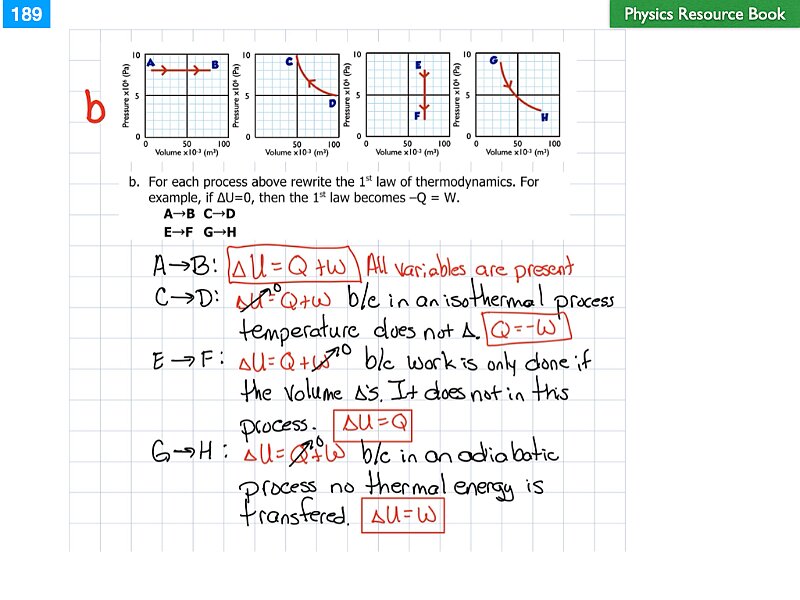 189
Physics Resource Book
b
10 10 10 10
A B C E G
Pressure x10⁶ (Pa) Pressure x10⁶ (Pa) Pressure x10⁶ (Pa) Pressure x10⁶ (Pa)
5 5 5 5
D F H
0 0 0 0
0 50 100 0 50 100 0 50 100 0 50 100
Volume x10⁻³ (m³) Volume x10⁻³ (m³) Volume x10⁻³ (m³) Volume x10⁻³ (m³)
b. For each process above rewrite the 1ˢᵗ law of thermodynamics. For
example, if ΔU=0, then the 1ˢᵗ law becomes –Q = W.
A→B C→D
E→F G→H
A→B: ΔU = Q + W All variables are present
C→D: ΔU⁰ = Q + W b/c in an isothermal process
temperature does not Δ. Q = -W
E→F: ΔU = Q + W⁰ b/c work is only done if
the volume Δ's. It does not in this
process. ΔU = Q
G→H: ΔU = Q⁰ + W b/c in an adiabatic
process no thermal energy is
transfered. ΔU = W